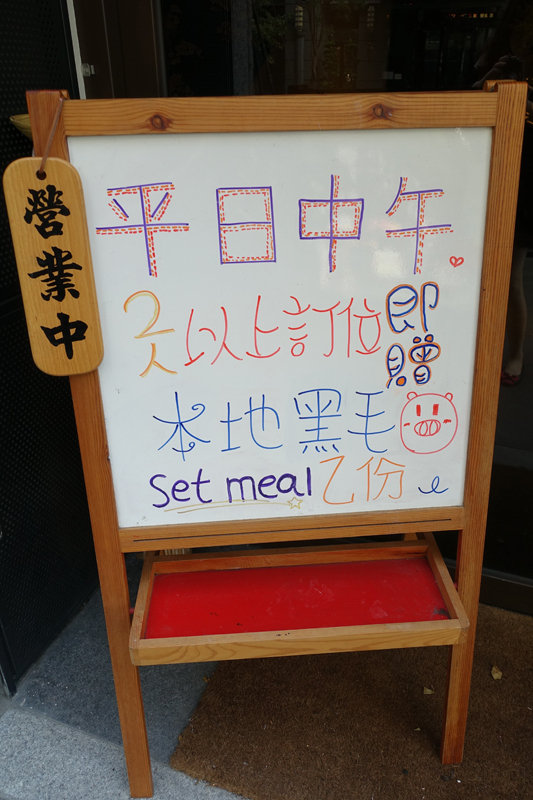 營業中
平日中午
2人以上訂位即贈
本地黑毛
set meal乙份